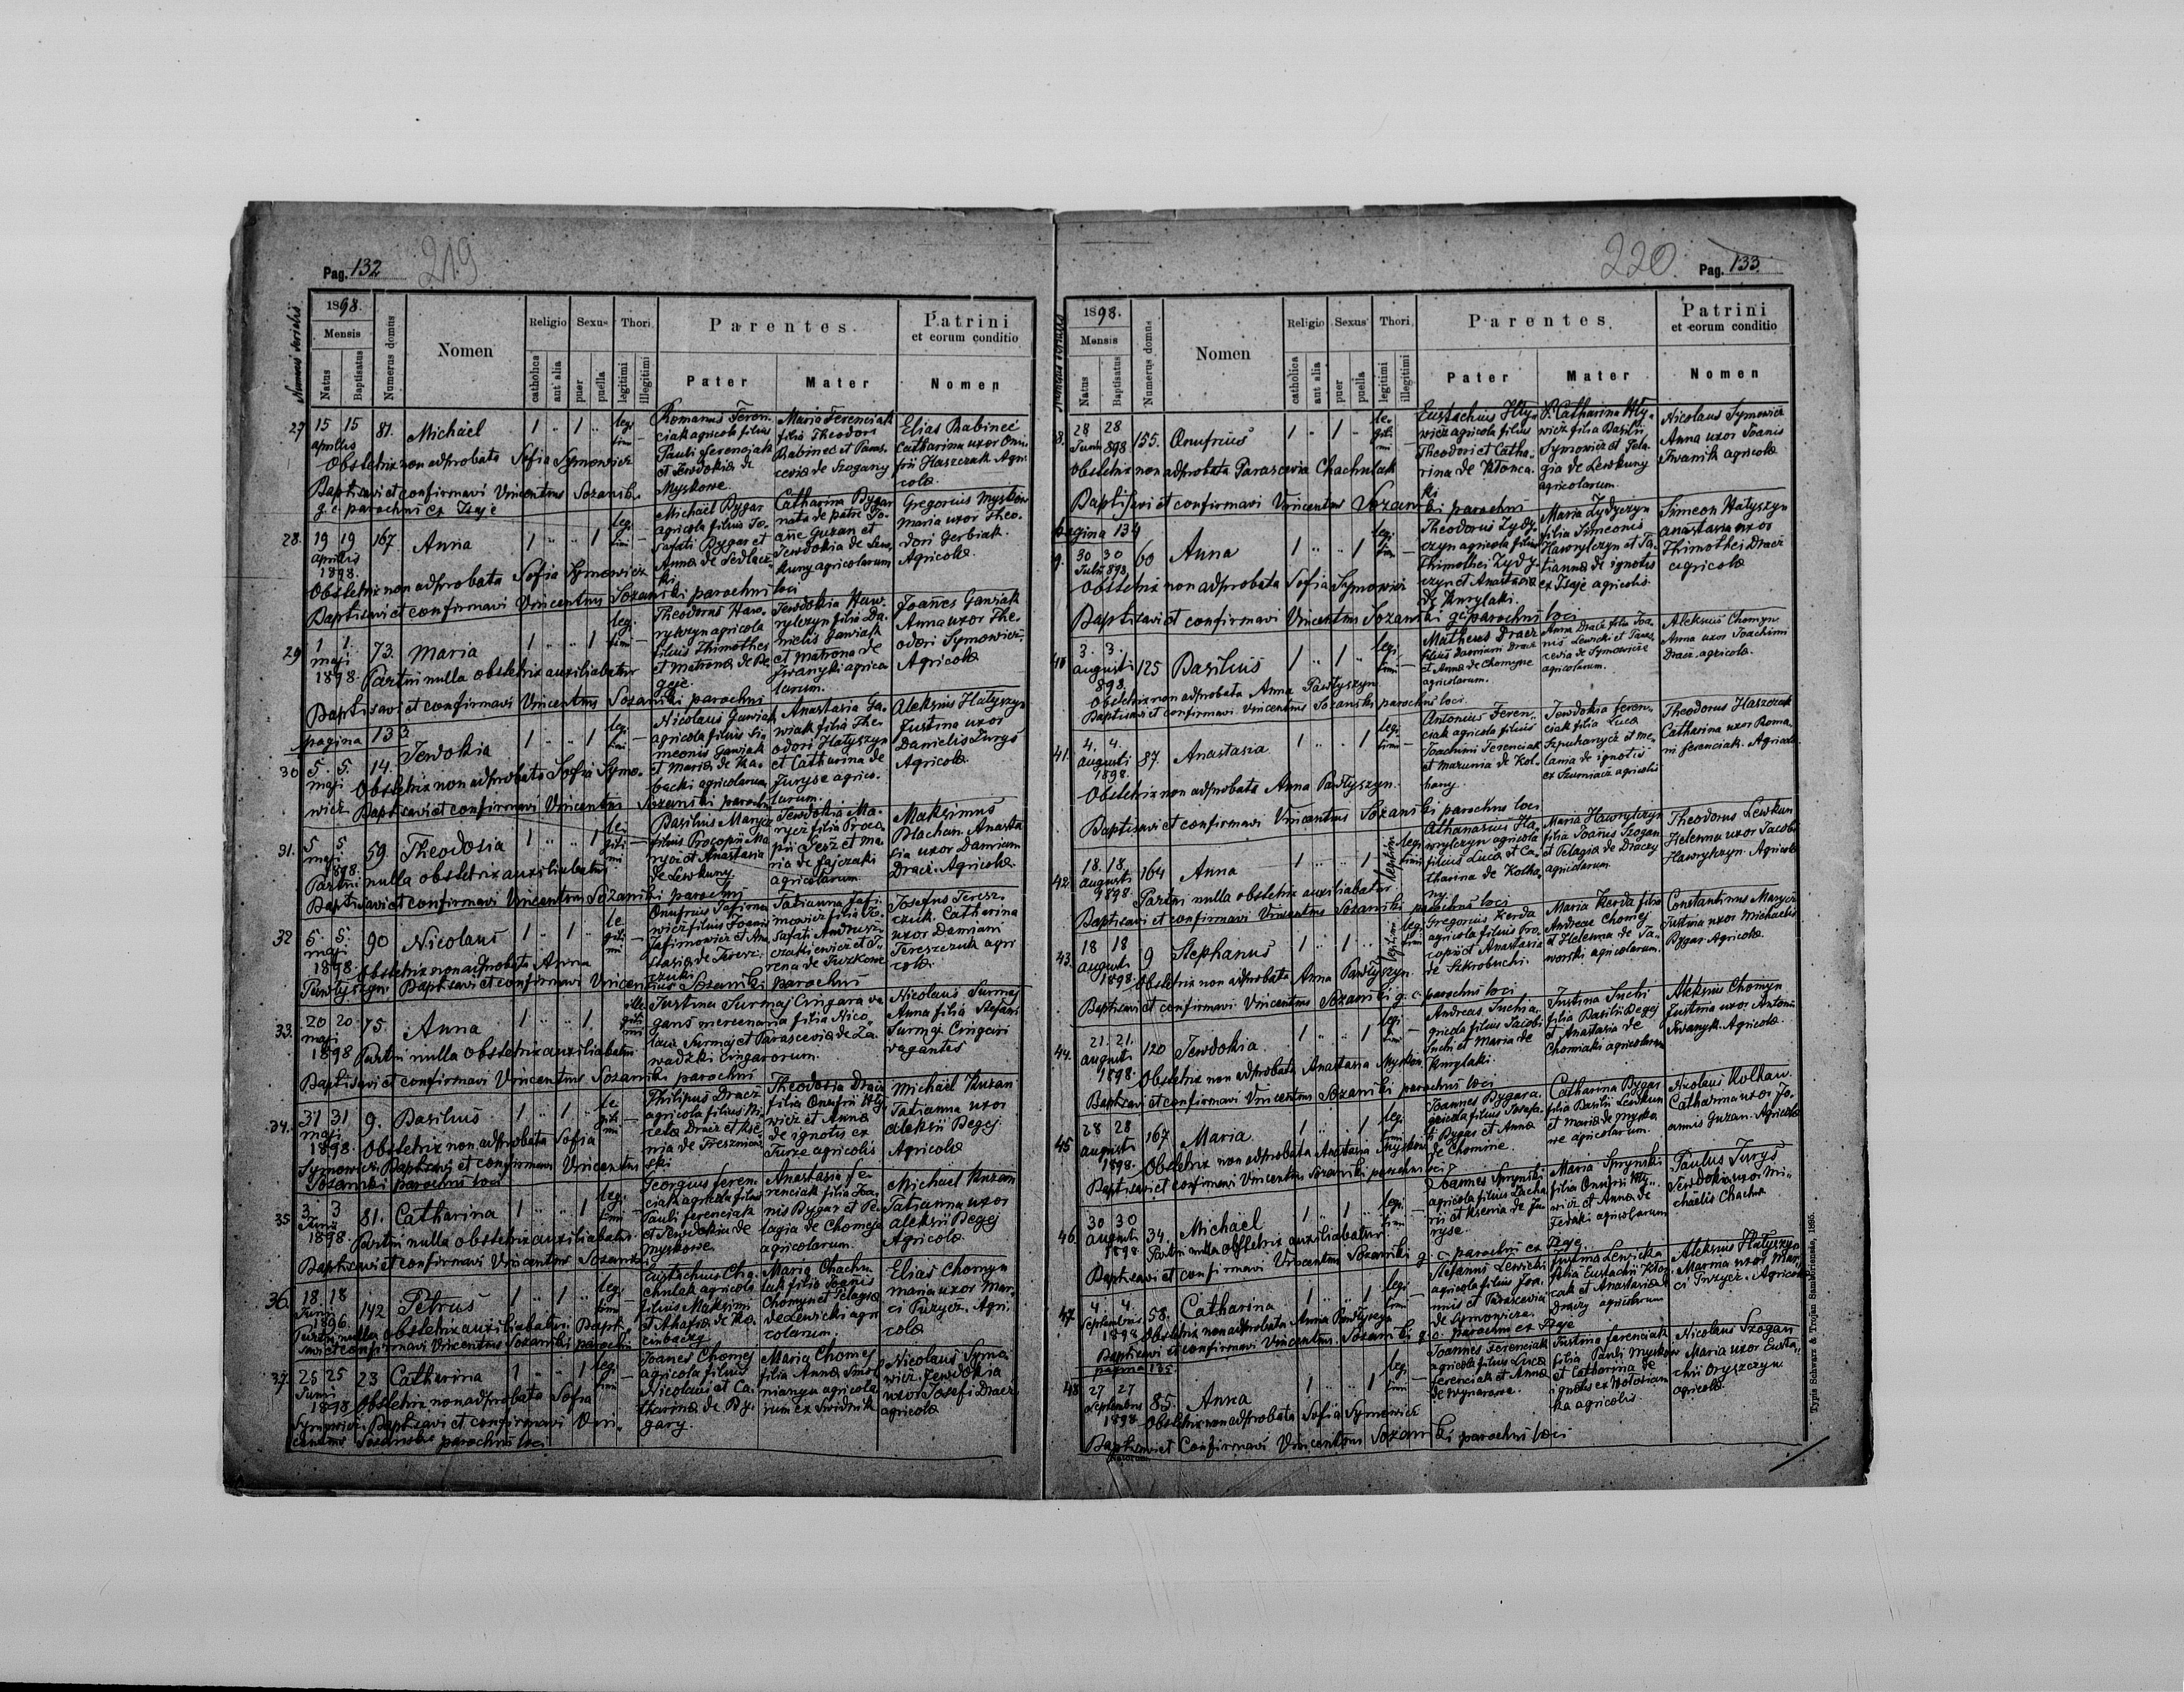 Pag. 132
219
Numerus serialis
1898.
Mensis
Natus
Baptisatus
Numerus domus
Nomen
Religio
catholica
aut alia
Sexus
puer
puella
Thori
legitimi
illegitimi
Parentes
Pater
Mater
Patrini
et eorum conditio
Nomen
27
15 15
aprilis
81.
Michael
1 " 1 "
legi
timi —
Romanus Feren-
ciak agricola filius
Pauli Ferenciak
et Jewdokia de
Myskowe.
Maria Ferenciak
filia Theodori
Babinec et Paras-
cevia de Szogany
Elias Babinec
Catharina uxor Onu-
frii Haszczak Agri-
colæ.
Obstetrix non adprobata Sofia Symowicz
Baptisavi et confirmavi Vincentius Sozanski
g. c. parochus ex Isaje
28.
19 19
aprilis
1898.
167
Anna
1 " " 1
legi
timi —
Michael Bygar
agricola filius Jo-
safati Bygar et
Anna de Sedlacz-
ki
Catharina Bygar
nata de patre Jo-
ane Guzan et
Jewdokia de Lew-
kuny agricolarum
Gregorius Myskow
Maria uxor Theo-
dori Gerbiak.
Agricolæ.
Obstetrix non adprobata Sofia Symowicz
Baptisavi et confirmavi Vincentius Sozanski parochus loci
29
1 1.
maji
1898.
73.
Maria
1 " " 1
legi
timi —
Theodorus Haw-
rylczyn agricola
filius Thimothei
et Matrona de Be-
geje.
Jewdokia Haw-
rylczyn filia Da-
nielis Gawiak
et Matrona de
Iwanyki agrico-
larum.
Joannes Gawiak
Anna uxor The-
odori Symowicz.
Agricolæ
Partui nulla obstetrix auxiliabatur
Baptisavi et confirmavi Vincentius Sozanski parochus
pagina 133
30
5. 5.
maji
14.
Jewdokia
1 " " 1
legi
timi —
Nicolaus Gawiak
agricola filius Si-
meonis Gawiak
et Maria de Ka-
backi agricolarum
Anastasia Ga-
wiak filia The-
odori Hatyszyn
et Catharina de
Juryse agrico-
larum.
Aleksius Hatyszyn
Justina uxor
Danielis Jurys
Agricolæ.
Obstetrix non adprobata Sofia Symo-
wicz Baptisavi et confirmavi Vincentius Sozanski parochus
31.
5 5.
maji
1898.
59
Theodosia
1 " " 1
le-
giti-
mi —
Basilius Marycz
filius Procopii Ma-
rycz et Anastasia
de Lewkuny.
Jewdokia Ma-
rycz filia Proco-
pii Jesz et Ma-
ria de Fajczaki
agricolarum
Maksimus
Blachan. Anasta-
sia uxor Damiani
Dracz. Agricolæ.
Partui nulla obstetrix auxiliabatur
Baptisavi et confirmavi Vincentius Sozanski parochus
32
5. 5.
maji
1898
90
Nicolaus
1 " 1 "
le-
giti-
mi —
Tatianna
Josefus Teresz-
czuk. Catharina
uxor Damiani
Tereszczuk agri-
colæ.
Obstetrix non adprobata Anna
Pawlyszyn. Baptisavi et confirmavi Vincentius Sozanski parochus
33.
20 20
maji
1898
75.
Anna
1 " " 1
ille-
giti-
mi
Justina Surmaj Cingara va-
gans mercenaria filia Nico-
lai Surmaj et Parascevia de Za-
wadzki cingarorum.
Nicolaus Surmaj
Anna filia Stefani
Surmaj. Cingari
vagantes
Partui nulla obstetrix auxiliabatur
Baptisavi et confirmavi Vincentius Sozanski parochus
34.
31 31
maji
1898.
9.
Basilius
1 " 1 "
le-
giti-
mi —
Philipus Dracz
agricola filius Ni-
cola Dracz et Kse-
nia de
Theodosia Dracz
filia Onufrii Hly-
wicz et Anna
de ignotis ex
Turze agricolis
Michael Kuzan
Tatianna uxor
Aleksii Begej
Agricolæ
Obstetrix non adprobata Sofia
Symowicz. Baptisavi et confirmavi Vincentius
Sozanski parochus loci
35
3 3
Junii
1898.
81.
Catharina
1 " " 1
legi
timi —
Georgius Feren-
ciak agricola filius
Pauli Ferenciak
et Jewdokia de
Myskowe.
Anastasia Fe-
renciak filia Joa-
nis Bygar et Pe-
lagia de Chomeje
agricolarum.
Michael Kuzan
Tatianna uxor
Aleksii Begej
Agricolæ
Partui nulla obstetrix auxiliabatur.
Baptisavi et confirmavi Vincentius Sozanski
36.
18. 18
Junii
142
Petrus
1 " 1 "
legi
timi —
Eustachius Cha-
chulak agricola
filius Maksimi
Maria Chachu-
lak filia Joanis
Chomyn et Pelagia
de Lewicki agri-
colarum.
Elias Chomyn
Maria uxor Mar-
ci Puzycz. Agri-
colæ
Partui nulla obstetrix auxiliabatur. Bapti-
savi et confirmavi Vincentius Sozanski parochus
37.
25 25
Junii
1898
23
Catharina
1 " " 1
legi
timi —
Joanes Chomej
agricola filius
Nicolaus et Ca-
tharina de By-
gary.
Maria Chomej
filia Anna Smol-
nianyn agricola-
rum ex Swidnik
Nicolaus Symo-
wicz. Jewdokia
uxor Josefi Dracz
agricolæ
Obstetrix non adprobata Sofia
Symowicz. Baptisavi et confirmavi Vin-
centius Sozanski parochus loci
220.
Pag. 133
1898.
Mensis
Natus
Baptisatus
Numerus domus
Nomen
Religio
catholica
aut alia
Sexus
puer
puella
Thori
legitimi
illegitimi
Parentes
Pater
Mater
Patrini
et eorum conditio
Nomen
8.
28 28
Junii 898
155.
Onufrius
1 " 1 "
le-
giti-
mi —
Eustachius Hly-
wicz agricola filius
Theodori et Catha-
rina de Klonca-
ki
Catharina Hly-
wicz filia Basilii
Symowicz et Pela-
gia de Lewkuny
agricolarum.
Nicolaus Symowicz
Anna uxor Joanis
Iwanik agricolæ
Obstetrix non adprobata Parascevia Chachulak
Baptisavi et confirmavi Vincentius Sozanski parochus
pagina 134
9.
30 30
Julii 898
60
Anna
1 " " 1
legi
timi —
Theodorus Zydy-
czyn agricola filius
Thimothei Zydy-
czyn et Anastasia
de Kurylaki.
Maria Zydyczyn
filia Simeonis
Hawrylczyn et Ta-
tianna de ignotis
ex Isaje agricolis
Simeon Hatyszyn
Anastasia uxor
Thimothei Dracz
agricolæ
Obstetrix non adprobata Sofia Symowicz
Baptisavi et confirmavi Vincentius Sozanski gc parochus loci
40
3. 3.
augusti
898.
125
Basilius
1 " 1 "
legi
timi —
Matheus Dracz
filius Damiani Dracz
et Anna de Chomyne
agricolarum.
Anna Dracz filia Joa-
nis Lewicki et Paras-
cevia de Symowicze
agricolarum.
Aleksius Chomyn
Anna uxor Joachimi
Dracz. agricolæ.
Obstetrix non adprobata Anna Pawlyszyn
Baptisavi et confirmavi Vincentius Sozanski parochus loci
41.
4. 4.
augusti
1898.
87.
Anastasia
1 " " 1
legi
timi —
Antonius Feren-
ciak agricola filius
Joachimi Ferenciak
et Marunia de Kol-
hany.
Jewdokia Feren-
ciak filia Luca
Szpuhanycz et Me-
lania de ignotis
ex Szumiacz agricolis
Theodorus Haszczak
Catharina uxor Roma-
ni Ferenciak. Agricolæ
Obstetrix non adprobata Anna Pawlyszyn.
Baptisavi et confirmavi Vincentius Sozanski parochus loci
42.
18. 18.
augusti
1898.
164
Anna
1 " " 1
legi
timi
Athanasius Ha-
wrylczyn agricola
filius Luca et Ca-
tharina de Kolha-
ny.
Maria Hawrylczyn
filia Joanis Szogan
et Pelagia de Draczy
agricolarum
Theodorus Lewkun
Helenna uxor Jacobi
Hawrylczyn. Agricolæ
Partui nulla obstetrix auxiliabatur
Baptisavi et confirmavi Vincentius Sozanski parochus loci
43.
18 18
augusti
1898
9
Stephanus
1 " 1 "
legi
timi
Gregorius Kerda
agricola filius Pro-
copii et Anastasia
de Szkrobuchi.
Maria Kerda filia
Andreae Chomej
et Helenna de Ja-
worski agricolarum.
Constantinus Marycz
Justina uxor Michaelis
Bygar Agricolæ.
Obstetrix non adprobata Anna Pawlyszyn.
Baptisavi et confirmavi Vincentius Sozanski g. c. parochus loci
44.
21. 21.
augusti
1898.
120
Jewdokia
1 " " 1
legi
timi —
Andreas Suchi a-
gricola filius Jacobi
Suchi et Maria de
Kurylaki.
Justina Suchi
filia Basilii Begej
et Anastasia de
Chomiaki agricolarum
Aleksius Chomyn
Justina uxor Antonii
Iwanyk. Agricolæ.
Obstetrix non adprobata Anastasia Myskow
Baptisavi et confirmavi Vincentius Sozanski parochus loci
45
28 28
augusti
1898.
167
Maria
1 " " 1
legi
timi
Joannes Bygar a-
gricola filius Josafa-
ti Bygar et Anna
de Chomine.
Catharina Bygar
filia Basilii Lewkun
et Maria de Mysko-
we agricolarum.
Nicolaus Kolhan.
Catharina uxor Jo-
annis Guzan. Agricolæ
Obstetrix non adprobata Anastasia Myskow
Baptisavi et confirmavi Vincentius Sozanski parochus loci
46.
30 30
augusti
1898.
34.
Michael
1 " 1 "
legi
timi —
Joannes Sprynski
agricola filius Zacha-
rii et Ksenia de Ju-
ryse.
Maria Sprynski
filia Onufrii Hly-
wicz et Anna de
Fedaki agricolarum
Paulus Jurys
Jewdokia uxor Mi-
chaelis Chachul
Partui nulla obstetrix auxiliabatur
Baptisavi et confirmavi Vincentius Sozanski g. c parochus ex Isaje.
47.
4. 4.
Septembris
1898
58.
Catharina
1 " " 1
legi
timi —
Stefanus Lewicki
agricola filius Joa-
nnis et Parascevia
de Symowicze.
Justina Lewicka
filia Eustachii Klon-
cak et Anastasia de
Draczy agricolarum
Aleksius Hatyszyn
Marina uxor Mar-
ci Puzycz. Agricolæ
Obstetrix non adprobata Anna Pawlyszyn
Baptisavi et confirmavi Vincentius Sozanski g. c. parochus ex Isaje
pagina 135
48
27 27
Septembris
1898.
85.
Anna
1 " " 1
legi
timi —
Joannes Ferenciak
agricola filius Luca
Ferenciak et Anna
de Wynarowe.
Justina Ferenciak
filia Pauli Myskow
et Catharina de
ignotis ex
agricolis.
Nicolaus Szogan
Maria uxor Eusta-
chii Oryszczyn
agricolæ
Obstetrix non adprobata Sofia Symowicz
Baptisavi et Confirmavi Vincentius Sozanski parochus loci
Natorum.
Typis Schwarz & Trojan Samboriensis, 1895.